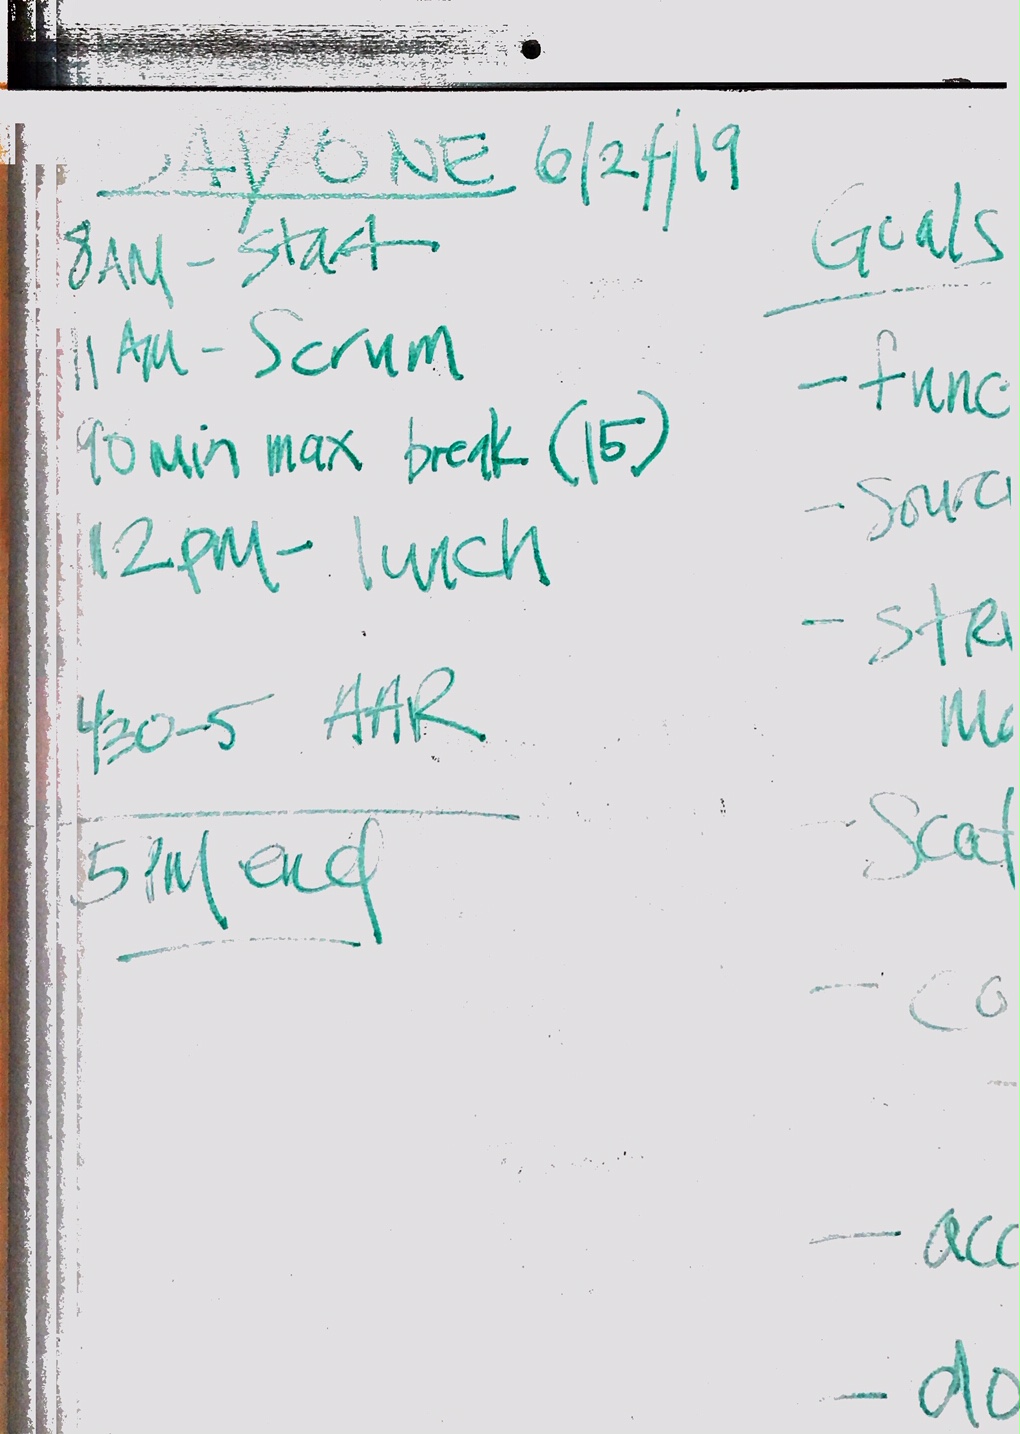 DAY ONE 6/24/19
8AM - Start
11AM - Scrum
90 min max break (15)
12PM - lunch
430-5 AAR
5PM end
Goals
- func
- Sourc
- STR
Mo
- Scaf
- CO
- acc
- do